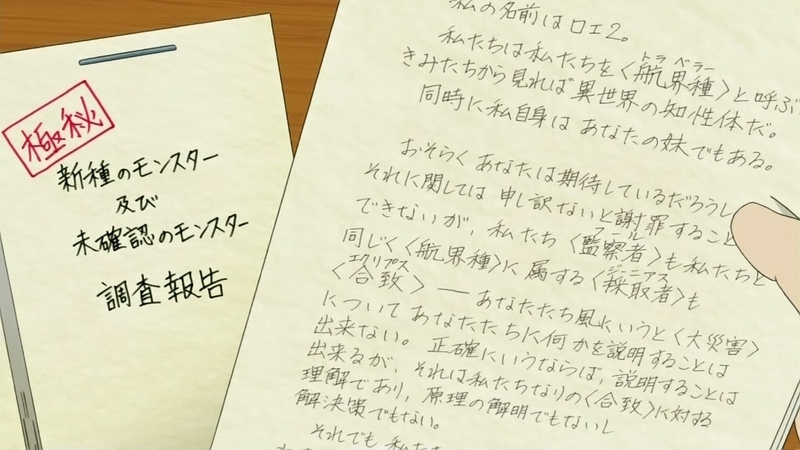 極秘
新種のモンスター
及び
未確認のモンスター
調査報告
私の名前はロエ2。
私たちは私たちを〈航界種〉と呼ぶ
トラベラー
きみたちから見れば異世界の知性体だ。
同時に私自身はあなたの妹でもある。
おそらくあなたは期待しているだろうし
それに関しては申し訳ないと謝罪すること
できないが、私たち〈監察者〉も私たちと
フール
同じく〈航界種〉に属する〈採取者〉も
ジーニアス
〈合致〉―あなたたち風にいうと〈大災害〉
エクリプス
についてあなたたちに何かを説明することは
出来ない。正確にいうならば、説明することは
出来るが、それは私たちなりの〈合致〉に対する
理解であり、原理の解明でもないし
解決策でもない。
それでも私た